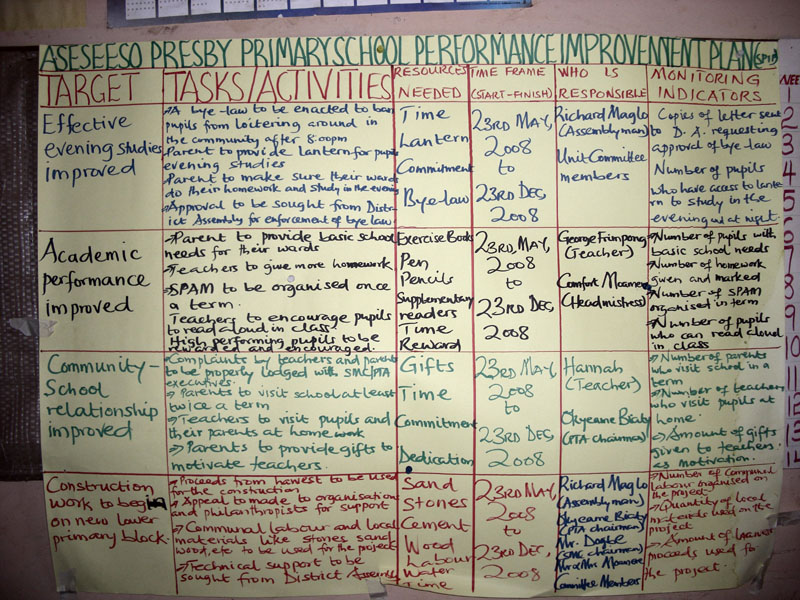 ASESEESO PRESBY PRIMARY SCHOOL PERFORMANCE IMPROVEMENT PLAN (SPIP)
TARGET
TASKS/ACTIVITIES
RESOURCES
NEEDED
TIME FRAME
(START-FINISH)
WHO IS
RESPONSIBLE
MONITORING
INDICATORS
Effective
evening studies
improved
→ A bye-law to be enacted to ban
pupils from loitering around in
the community after 8:00pm
Parent to provide lantern for pupils
evening studies
→ Parent to make sure their wards
do their homework and study in the evening
→ Approval to be sought from Distr-
ict Assembly for enforcement of bye law
Time
Lantern
Commitment
Bye-law
23RD MAY,
2008
to
23RD DEC,
2008
Richard Maglo
(Assemblyman)
Unit Committee
members
Copies of letter sent
to D.A. requesting
approval of bye-law
Number of pupils
who have access to lante-
rn to study in the
evening at night
Academic
performance
improved
→ Parent to provide basic school
needs for their wards
→ Teachers to give more homework
→ SPAM to be organised once
a term.
Teachers to encourage pupils
to read aloud in class
High performing pupils to be
rewarded and encouraged.
Exercise Books
Pen
Pencils
Supplementary
readers
Time
Reward
23RD, MAY,
2008
to
23RD DEC,
2008
George Frimpong
(Teacher)
Comfort
(Headmistress)
→ Number of pupils with
basic school needs
→ Number of homework
given and marked
→ Number of SPAM
organised in term
→ Number of pupils
who can read aloud
in class
Community-
School
relationship
improved
→ Complaints by teachers and parents
to be properly lodged with SMC/PTA
executives.
→ Parents to visit school at least
twice a term
→ Teachers to visit pupils and
their parents at home work
→ Parents to provide gifts to
motivate teachers.
Gifts
Time
Commitment
Dedication
23RD MAY,
2008
to
23RD DEC,
2008
Hannah
(Teacher)
Okyeame
(PTA chairman)
→ Number of parents
who visit school in a
term
→ Number of teachers
who visit pupils at
home.
→ Amount of gifts
given to teachers
as motivation.
Construction
work to begin
on new lower
primary block.
→ Proceeds from harvest to be used
for the construction
→ Appeals made to organisations
and philanthropists for support
→ Communal labour and local
materials like stones sand
wood, etc to be used for the project
→ Technical support to be
sought from District Assembly
Sand
Stones
Cement
Wood
Labour
Water
Time
23RD MAY,
2008
to
23RD DEC,
2008
Richard Maglo
(Assemblyman)
Okyeame
(PTA chairman)
Mr. Dogbe
(SMC chairman)
Committee Members
→ Number of communal
labour organised on
the project
→ Quantity of local
materials used on the
project
→ Amount of
proceeds used for
the project.
NEE
1
2
3
4
5
6
7
8
9
10
11
12
13
14